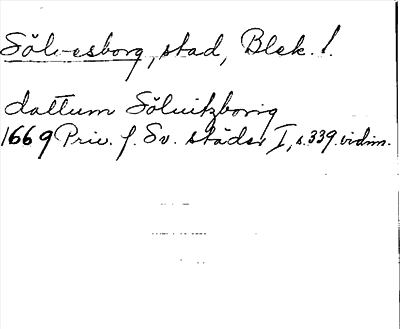 Sölvesborg, stad, Blek. l.
dattum Söluitzborig
1669 Priv. f. Sv. städer I, s. 339. vidim.